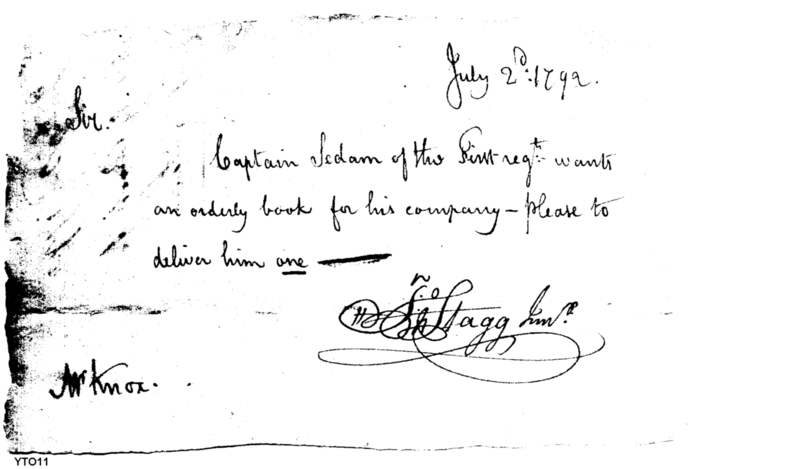 July 2d. 1792.
Sir.
Captain Sedam of the First regt. wants
an orderly book for his company – please to
deliver him one
Jno Stagg Junr.
Mr Knox.
YTO11